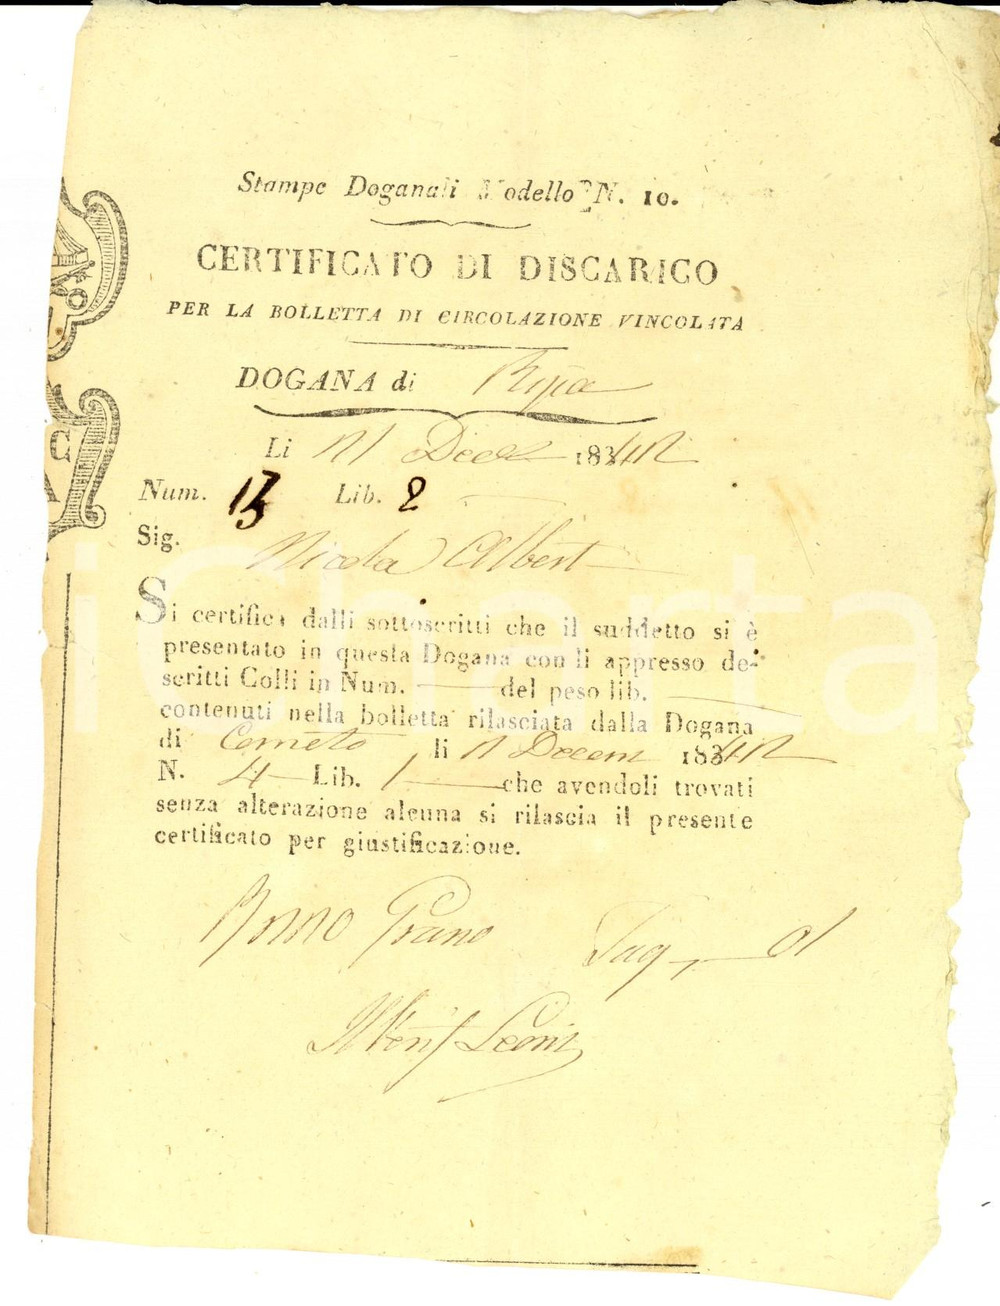 Stampe Doganali Modello N. 10.
CERTIFICATO DI DISCARICO
PER LA BOLLETTA DI CIRCOLAZIONE VINCOLATA
DOGANA di Ripa
Li 183
Num. 13 Lib. 2
Sig. Nicola Albert
Si certifica dalli sottoscritti che il suddetto si è
presentato in questa Dogana con li appresso de-
scritti Colli in Num. del peso lib.
contenuti nella bolletta rilasciata dalla Dogana
di Corneto li Decem 183
N. 4 Lib. 1 che avendoli trovati
senza alterazione alcuna si rilascia il presente
certificato per giustificazione.